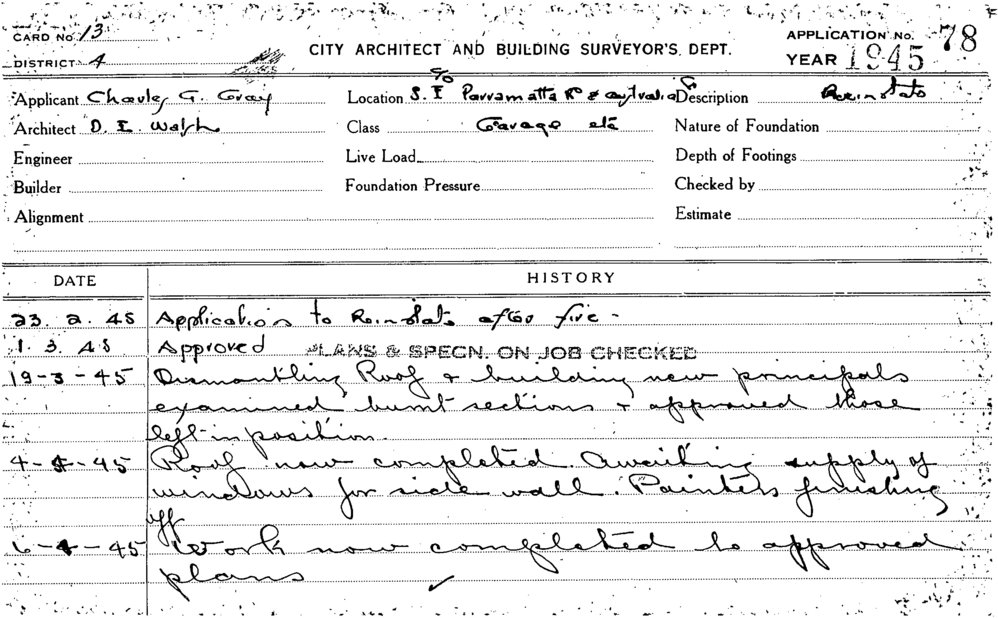 CARD No. 13
DISTRICT 4
CITY ARCHITECT AND BUILDING SURVEYOR'S DEPT.
APPLICATION No. 78
YEAR 1945
Applicant Charles G. Gray
Location S.E c/o Parramatta Rd & Australia
Description Reinstate
Architect D. E. Walsh
Class Garage etc
Nature of Foundation
Engineer
Live Load
Depth of Footings
Builder
Foundation Pressure
Checked by
Alignment
Estimate
DATE HISTORY
23. 2. 45 Application to Reinstate after fire -
1. 3. 45 Approved PLANS & SPECN. ON JOB CHECKED
19-3-45 Dismantling Roof & building new principals
examined burnt sections & approved those
left in position.
4-4-45 Roof now completed. Awaiting supply of
windows for side wall. Painters finishing
off
6-4-45 Work now completed to approved
plans